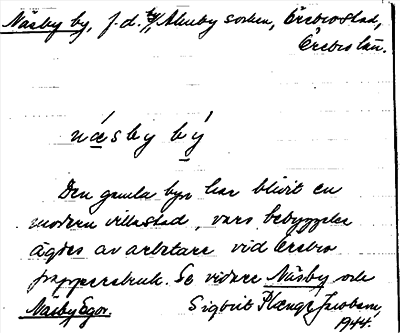 Näsby by, f.d. Almby socken, Örebro stad,
Örebro län.
næsby bý
Den gamla byn har blivit en
modern villastad, vars bebyggelse
ägdes av arbetare vid Örebro
pappersbruk. Se vidare Näsby och
Näsby Egor. Sigbrit Plænge Jacobson,
1944.